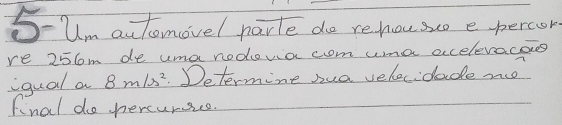 5- Um automóvel parte do repouso e percor-
re 256m de uma rodovia com uma aceleração
igual a 8 m/s². Determine sua velocidade no
final do percurso.